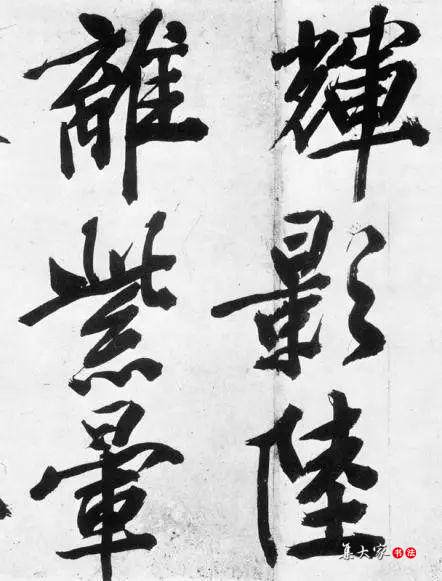 輝影陸
離紫暈
集大家 书法